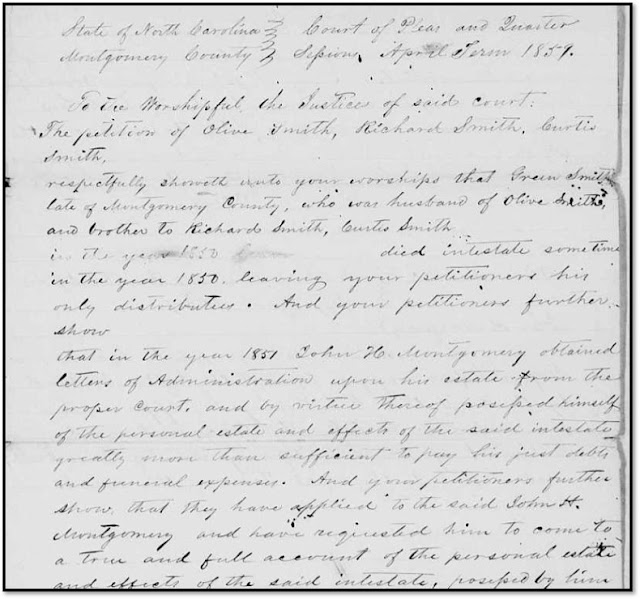 State of North Carolina } Court of Pleas and Quarter
Montgomery County } Sessions, April Term 1859.
To the Worshipful, the Justice of said court:
The petition of Olive Smith, Richard Smith, Curtis
Smith,
respectfully showeth unto your worships that Green Smith
late of Montgomery County, who was husband of Olive Smith,
and brother to Richard Smith, Curtis Smith
in the year 1850 died intestate sometime
in the year 1850. leaving your petitioners his
only distributees. And your petitioners further
show
that in the year 1851 John H. Montgomery obtained
letters of Administration upon his estate from the
proper court, and by virtue thereof possessed himself
of the personal estate and effects of the said intestate
greatly more than sufficient to pay his just debts
and funeral expenses. And your petitioners further
show, that they have applied to the said John H.
Montgomery and have requested him to come to
a true and full account of the personal estate
and effects of the said intestate, possessed by him